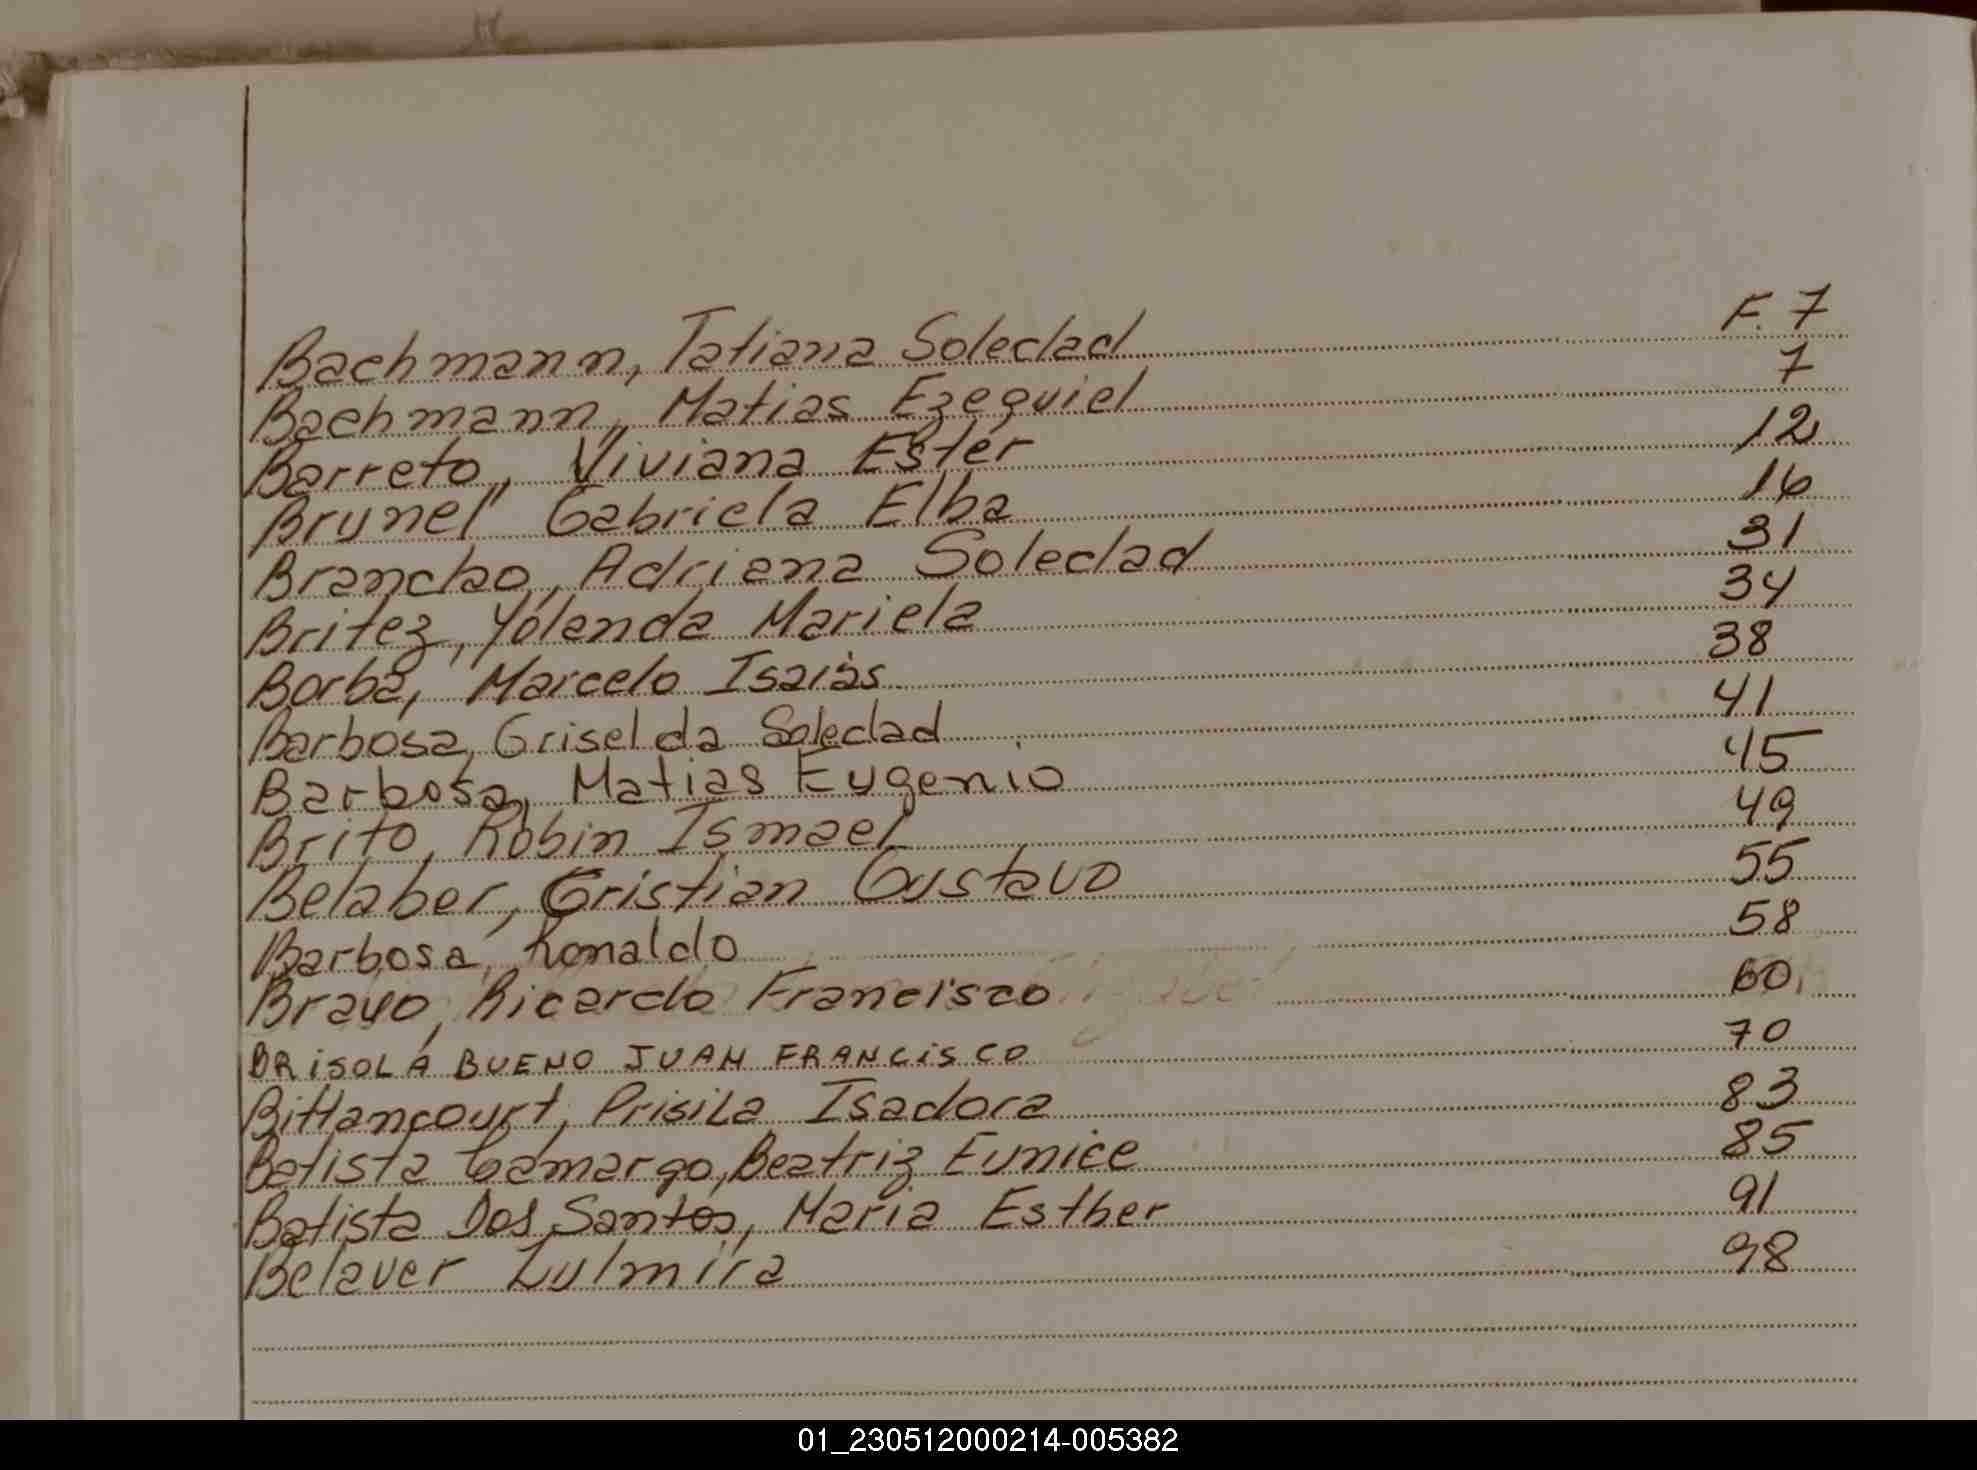 Bachmann, Tatiana Soledad F. 7
Bachmann, Matias Ezequiel 7
Barreto, Viviana Ester 12
Brunel Gabriela Elba 16
Branchao, Adriana Soledad 31
Britez, Yolanda Mariela 34
Borba, Marcelo Isaías 38
Barbosa, Griselda Soledad 41
Barbosa, Matias Eugenio 45
Brito, Robin Ismael 49
Belaber, Cristian Gustavo 55
Barbosa, Ronaldo 58
Bravo, Ricardo Francisco 60
BRISOLA BUENO JUAN FRANCISCO 70
Bittancourt, Prisila Isadora 83
Batista Camargo, Beatriz Eunice 85
Batista Dos Santos, Maria Esther 91
Belaver Lulmira 98
01_230512000214-005382